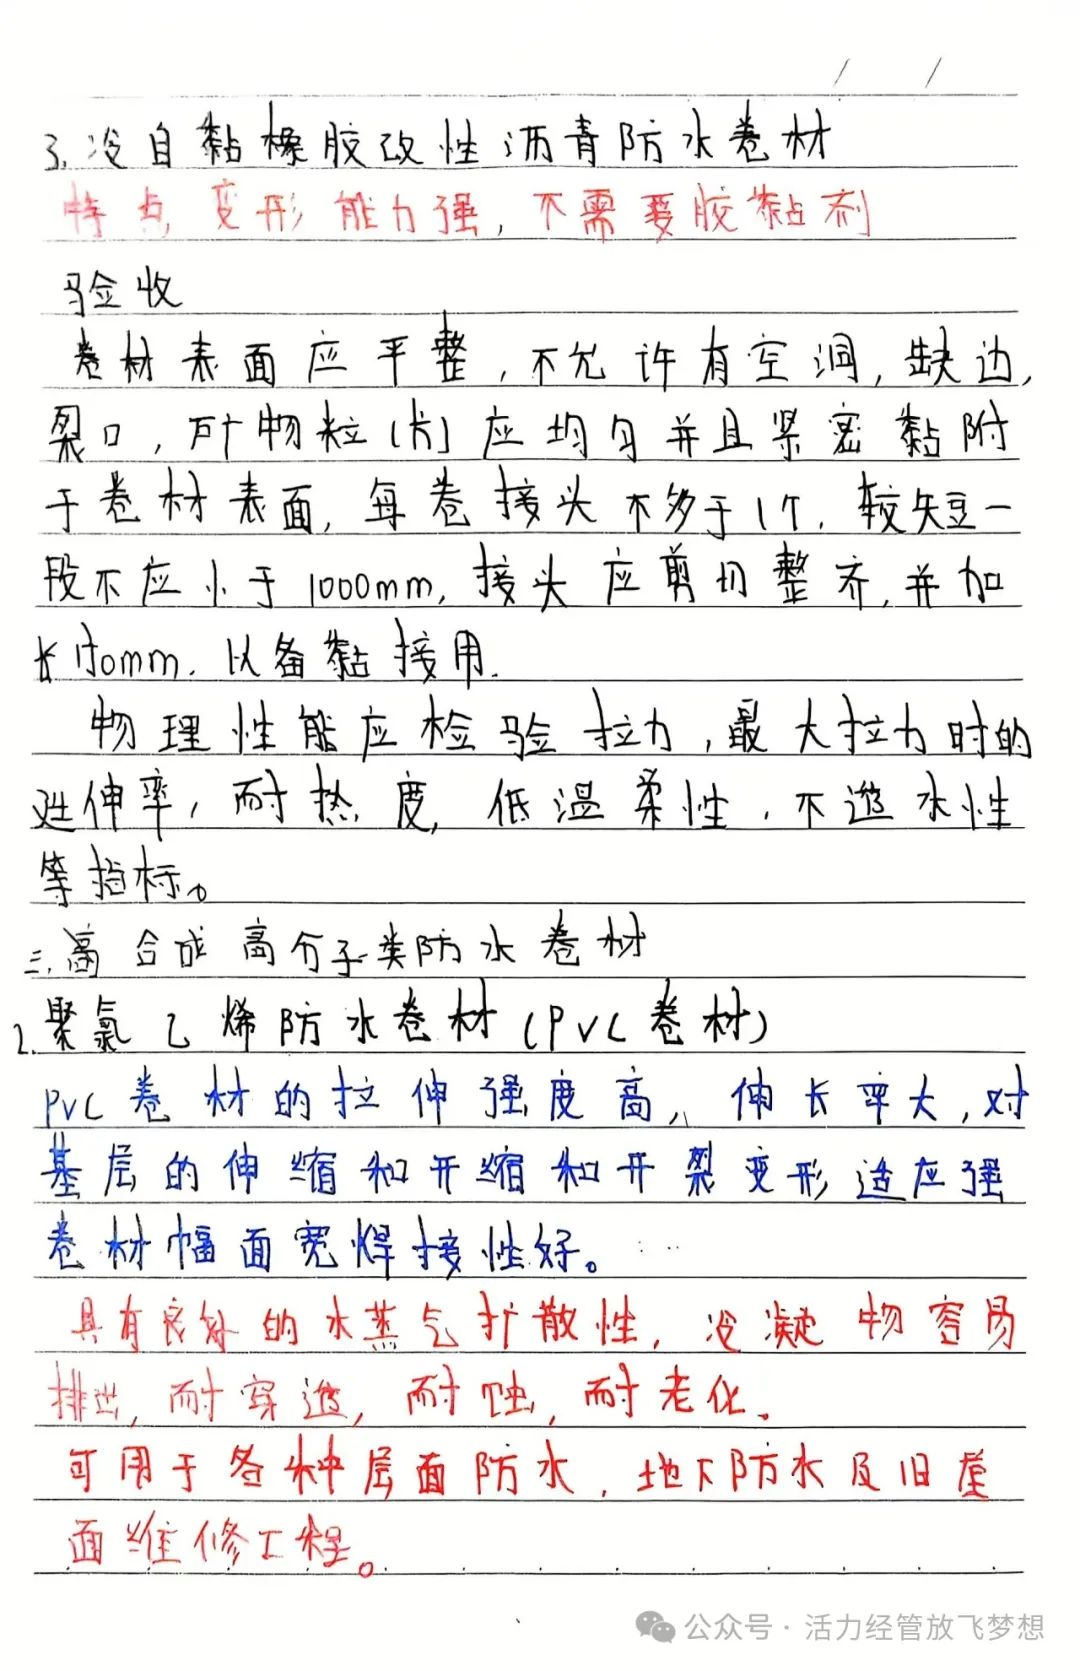 3.冷自黏橡胶改性沥青防水卷材
特点,变形能力强,不需要胶黏剂
验收
卷材表面应平整,不允许有空洞,缺边,
裂口,矿物粒(片)应均匀并且紧密黏附
于卷材表面,每卷接头不多于1个,较短一
段不应小于1000mm,接头应剪切整齐,并加
长150mm.以备黏接用.
物理性能应检验拉力,最大拉力时的
延伸率,耐热度,低温柔性,不透水性
等指标。
三.合成高分子类防水卷材
2.聚氯乙烯防水卷材(PVC卷材)
PVC卷材的拉伸强度高,伸长率大,对
基层的伸缩和开缩和开裂变形适应强
卷材幅面宽焊接性好。
具有良好的水蒸气扩散性,冷凝物容易
排出,耐穿透,耐蚀,耐老化.
可用于各种层面防水,地下防水及旧屋
面维修工程。
公众号·活力经管放飞梦想